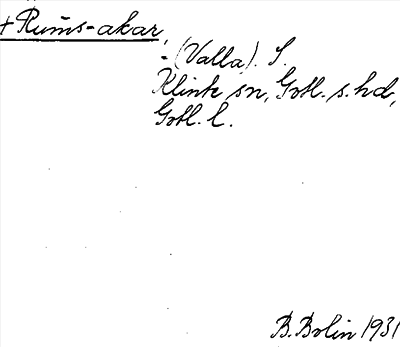 + Rūms-akar,
- (Valla). S.
Klinte sn, Gotl. s. hd,
Gotl. l.
B. Bolin 1931